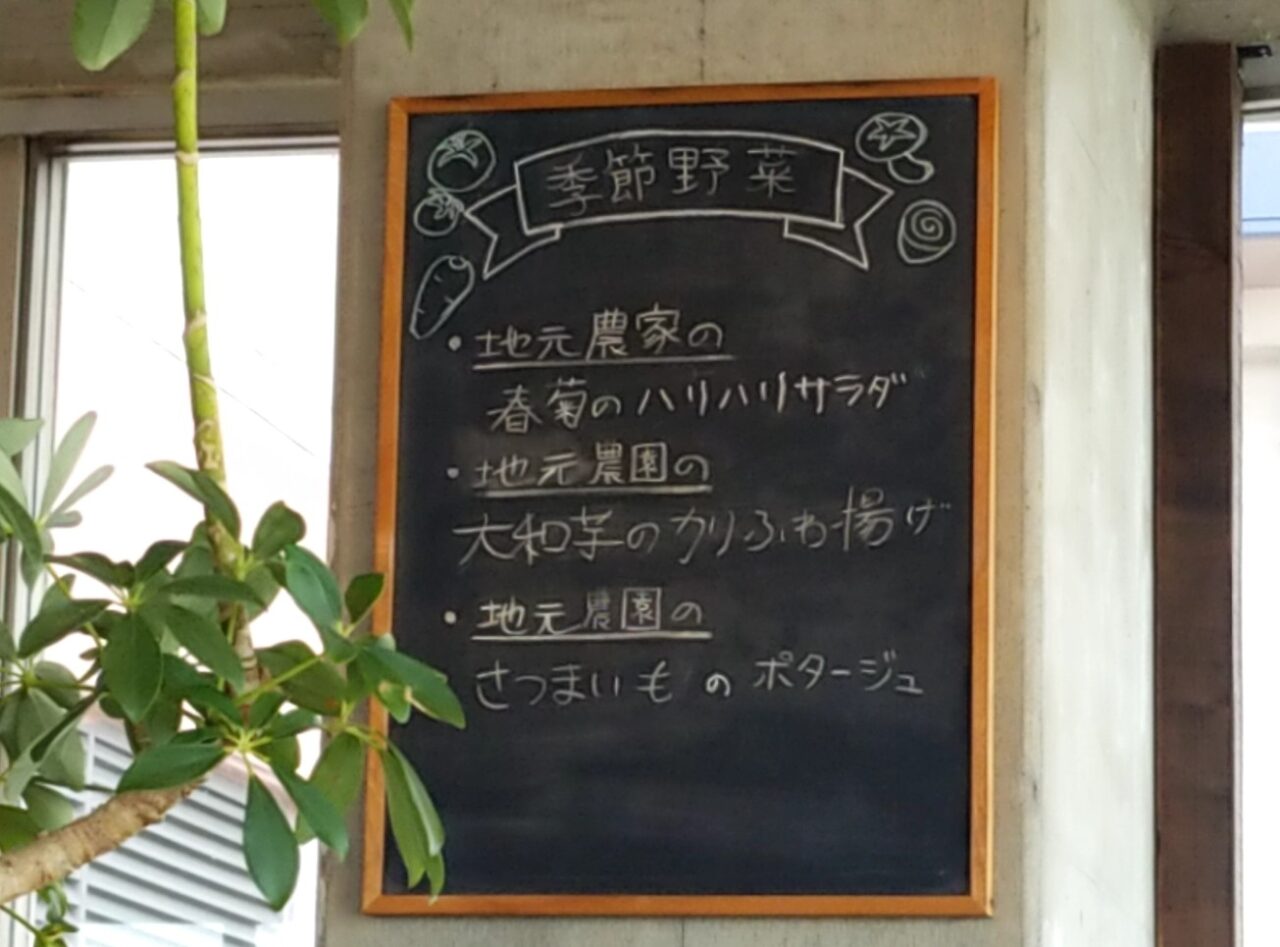 季節野菜
・地元農家の
春菊のハリハリサラダ
・地元農園の
大和芋のカリふわ揚げ
・地元農園の
さつまいものポタージュ